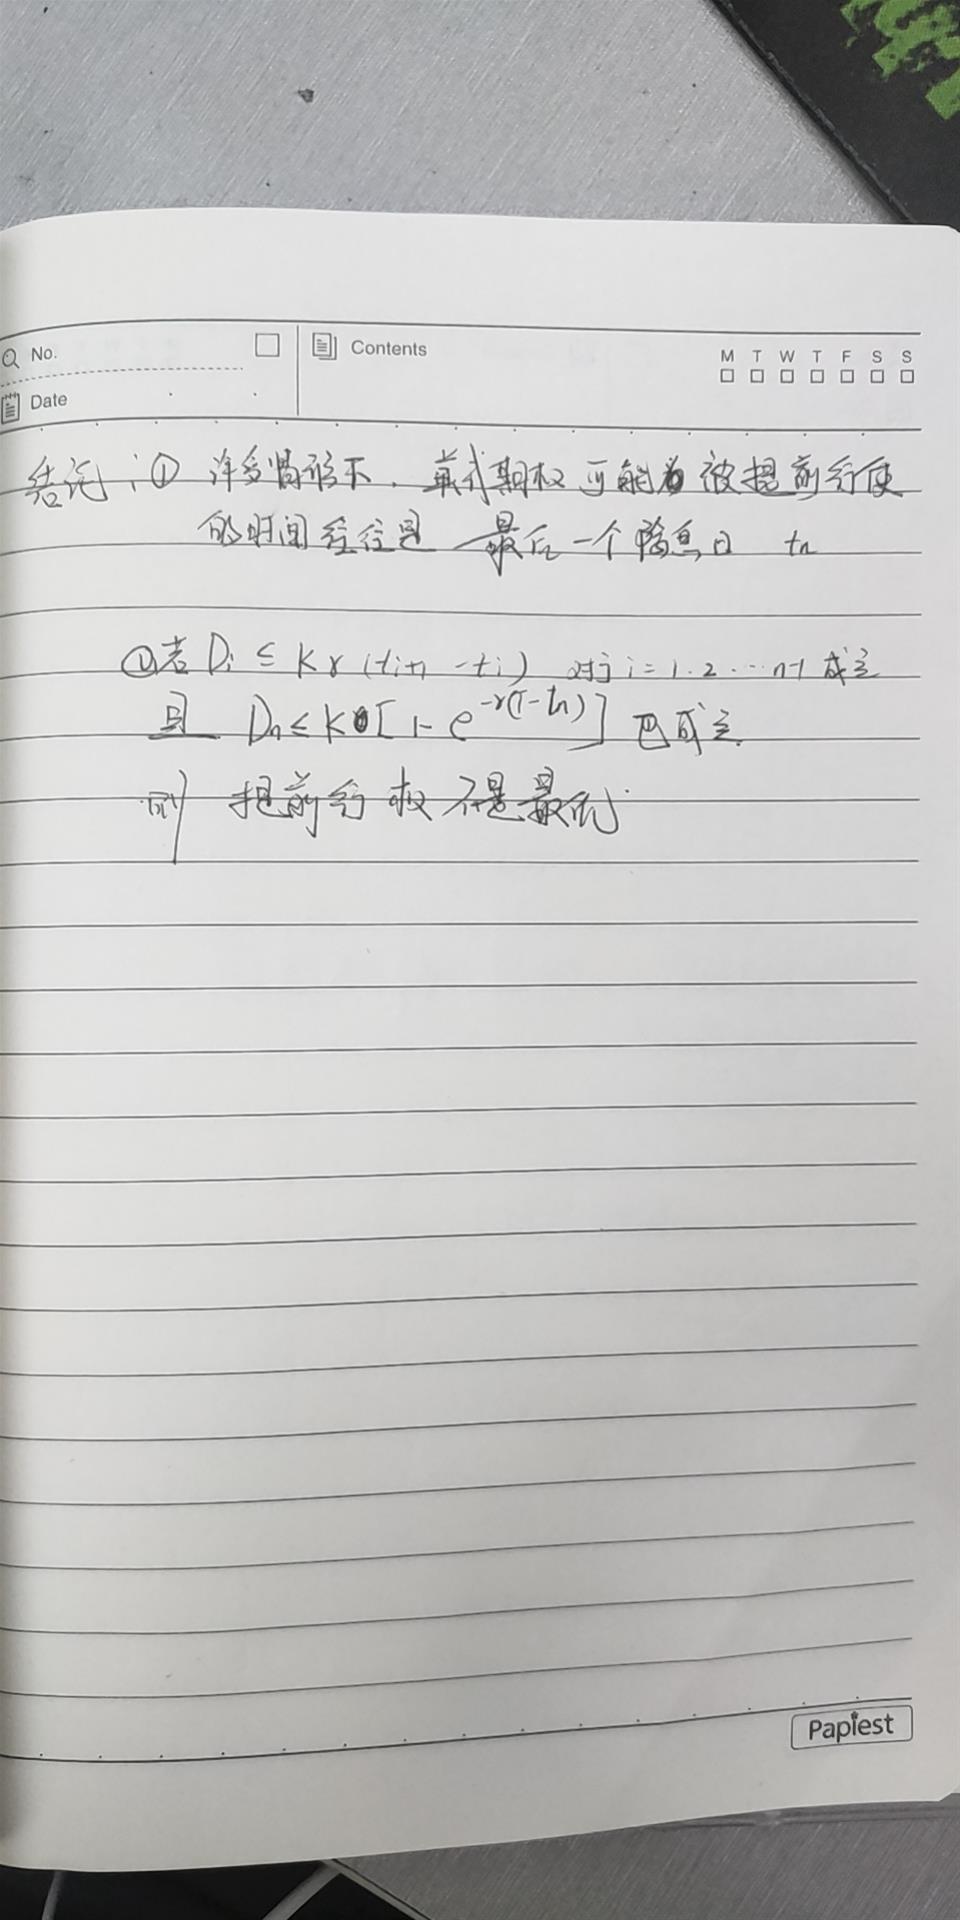 No.
Contents
M T W T F S S
Date
结论：① 许多情形下，美式期权可能被提前行使
的时间往往是 最后一个除息日 tn
②若 Di ≤ Kr(ti+1 - ti) 对于 i = 1.2 … n-1 成立
且 Dn ≤ K[1-e^{-r(T-tn)}] 也成立.
则 提前行权不是最优.
Papiest